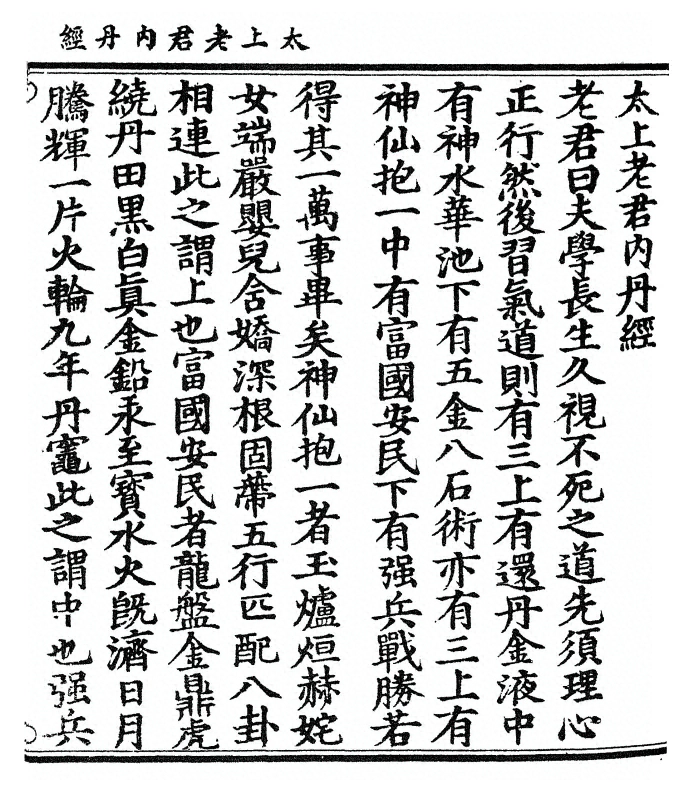 太上老君内丹經
太上老君内丹經
老君曰夫學長生久視不死之道先須理心
正行然後習氣道則有三上有還丹金液中
有神水華池下有五金八石術亦有三上有
神仙抱一中有富國安民下有强兵戰勝若
得其一萬事畢矣神仙抱一者玉爐烜赫姹
女端嚴嬰兒含嬌深根固蔕五行匹配八卦
相連此之謂上也富國安民者龍盤金鼎虎
繞丹田黑白眞金鉛汞至寳水火旣濟日月
騰輝一片火輪九年丹竈此之謂中也强兵